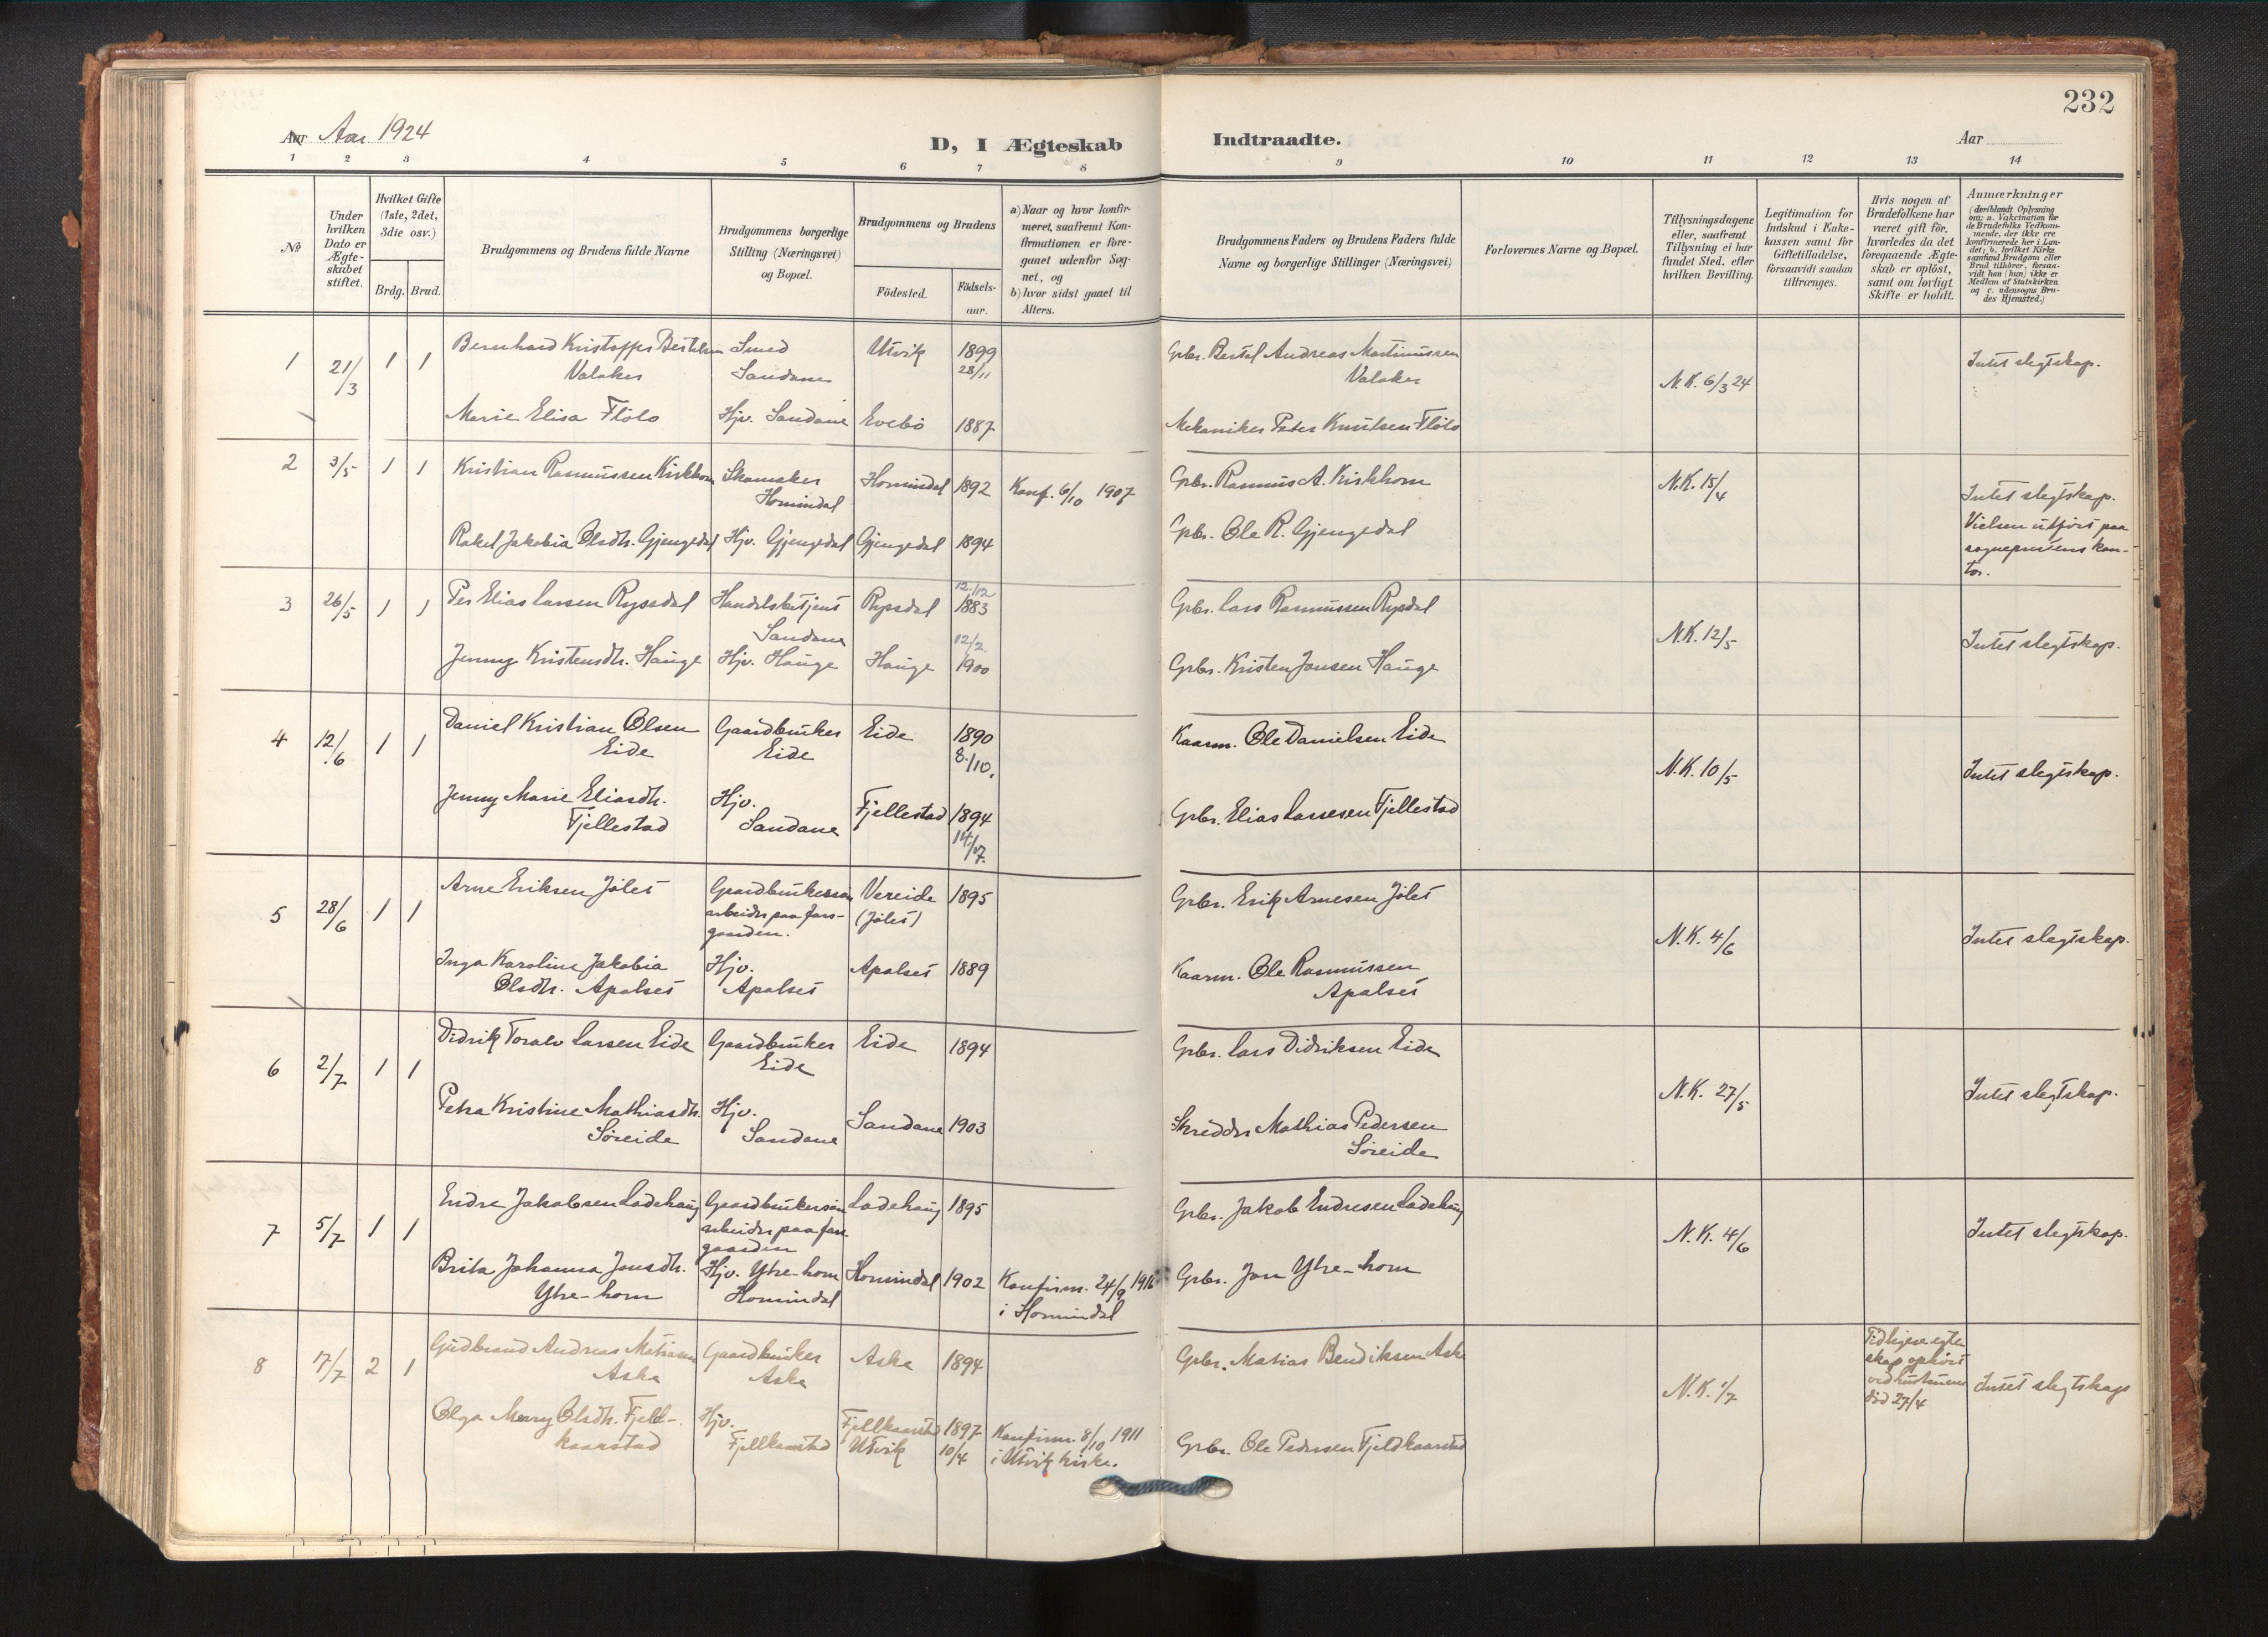 232
Aar Aar 1924
D, I Ægteskab Indtraadte.
Aar
1 2 3 4 5 6 7 8 9 10 11 12 13 14
No
Under hvilken Dato er Ægteskabet stiftet.
Hvilket Gifte (1ste, 2det, 3die osv.)
Brdg. Brud.
Brudgommens og Brudens fulde Navne
Brudgommens borgerlige Stilling (Næringsvei) og Bopæl.
Brudgommens og Brudens
Födested.
Födselsaar.
a) Naar og hvor konfirmeret, saafremt Konfirmationen er foregaaet udenfor Sognet, og
b) hvor sidst gaaet til Alters.
Brudgommens Faders og Brudens Faders fulde Navne og borgerlige Stillinger (Næringsvei)
Forlovernes Navne og Bopæl.
Tillysningsdagene eller, saafremt Tillysning ei har fundet Sted, efter hvilken Bevilling.
Legitimation for Indskud i Enkekassen samt for Giftetilladelse, forsaavidt saadan tiltrænges.
Hvis nogen af Brudefolkene har været gift för, hvorledes da det foregaaende Ægteskab er oplöst, samt om lovligt Skifte er holdt.
Anmærkninger
(deriblandt Oplysning om: a. Vaksination for de Brudefolks Vedkommende, der ikke ere konfirmerede her i Landet; b. hvilket Kirkesamfund Brudgom eller Brud tilhörer, forsaavidt han (hun) ikke er Medlem af Statskirken og c. udensogns Brudes Hjemsted.)
1 21/3 1 1 Bernhard Kristoffer Bertelsen Smed Utvik 1899 Grbr. Bertel Andreas Martinussen Intet slegtskap.
Valaker Sandane 28/11 Valaker N.K. 6/3 24
Marie Elisa Flölo Hjv. Sandane Evebö 1887 Mekaniker Peter Knutsen Flölo
2 3/5 1 1 Kristian Rasmussen Kirkhorn Skomaker Hornindal 1892 Konf. 6/10 1907 Grbr. Rasmus A. Kirkhorn N.K. 15/4 Intet slegtskap.
Hornindal
Rakel Jakobia Olsdtr. Gjengedal Hjv. Gjengedal Gjengedal 1894 Grbr. Ole R. Gjengedal Vielsen utfört paa
sogneprestens kon-
tor.
3 26/5 1 1 Per Elias Larsen Ryssdal Handelsbetjent Ryssdal 12/12 1883 Grbr. Lars Rasmussen Rysdal
Sandane N.K. 12/5 Intet slegtskap.
Jenny Kristensdtr. Hauge Hjv. Hauge Hauge 12/2. 1900 Grbr. Kristen Jonsen Hauge
4 12/6 1 1 Daniel Kristian Olsen Gaardbruker Eide 1890 Kaarm. Ole Danielsen Eide
Eide Eide 8./10. N.K. 10/5 Intet slegtskap.
Jenny Marie Eliasdtr. Hjv. Fjellestad 1894 Grbr. Elias Larsesen Fjellestad
Fjellestad Sandane 14/7.
5 28/6 1 1 Arne Eriksen Jölet Gaardbrukersön Vereide 1895 Grbr. Erik Arnesen Jölet
arbeider paa fars- (Jölet) N.K. 4/6 Intet slegtskap.
gaarden.
Inga Karoline Jakobia Hjv. Apalset 1889 Kaarm. Ole Rasmussen
Olsdtr. Apalset Apalset Apalset
6 2/7 1 1 Didrik Toralv Larsen Eide Gaardbruker Eide 1894 Grbr. Lars Didriksen Eide
Eide N.K. 27/5 Intet slegtskap.
Petra Kristine Mathiasdtr. Hjv. Sandane 1903 Skredder Mathias Pedersen
Söreide Sandane Söreide
7 5/7 1 1 Endre Jakobsen Ladehaug Gaardbrukersön Ladehaug 1895 Grbr. Jakob Endresen Ladehaug
arbeider paa fars- N.K. 4/6 Intet slegtskap.
gaarden
Brita Johanna Jonsdtr. Hjv. Ytre-horn Hornindal 1902 Konfirm. 24/9 1916 Grbr. Jon Ytre-horn
Ytre-horn Hornindal i Hornindal
8 17/7 2 1 Gudbrand Andreas Matiasen Gaardbruker Aske 1894 Grbr. Matias Bendiksen Aske Tidligere egte-
Aske Aske N.K. 1/7 skap ophört Intet slegtskap
ved hustruens
död 27/4
Olga Merry Olsdtr. Fjeld- Hjv. Fjellkaarstad 1897 Konfirm. 8/10 1911 Grbr. Ole Pedersen Fjeldkaarstad
kaarstad Fjellkaarstad Utvik 10/4 i Utvik kirke.